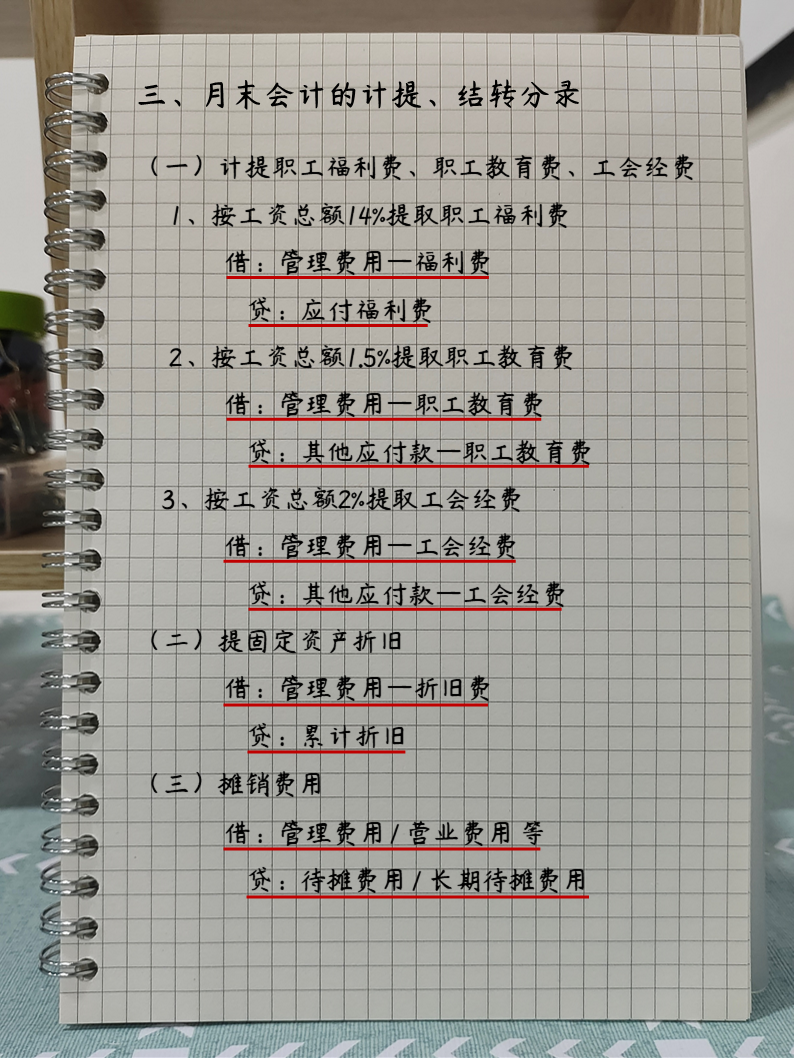 三、月末会计的计提、结转分录
（一）计提职工福利费、职工教育费、工会经费
1、按工资总额14%提取职工福利费
借：管理费用—福利费
贷：应付福利费
2、按工资总额1.5%提取职工教育费
借：管理费用—职工教育费
贷：其他应付款—职工教育费
3、按工资总额2%提取工会经费
借：管理费用—工会经费
贷：其他应付款—工会经费
（二）提固定资产折旧
借：管理费用—折旧费
贷：累计折旧
（三）摊销费用
借：管理费用/营业费用等
贷：待摊费用/长期待摊费用